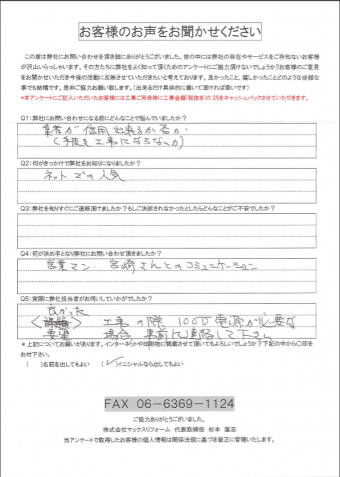 お客様のお声をお聞かせください
この度は弊社にお問い合わせを頂き誠にありがとうございました。世の中には弊社の存在やサービスをご存知ないお客様
が沢山いらっしゃいます。その方たちに弊社をよく知って頂くためのアンケートにご協力頂けないでしょうか？お客様のご意見
をお聞かせいただき今後の活動に反映させていただきたいと考えております。良かったこと、嬉しかったことどのような些細な
事でも結構です。是非ご協力お願い致します。（出来るだけ具体的に書いて頂ければ幸いです）
*本アンケートにご記入いただいたお客様には工事ご用命時に工事金額(税抜き)の 2%をキャッシュバックさせていただきます。
Q1:弊社にお問い合わせになる前にどんなことで悩んでいましたか？
業者が信用出来るか否か
(手抜き工事にならないか)
Q2:何がきっかけで弊社をお知りになりましたか？
ネットでの人気
Q3:弊社を知りすぐにご連絡頂けましたか？もしご決断されなかったとしたらどんなことがご不安でしたか？
Q4:何が決め手となり弊社にお問い合わせ頂けましたか？
営業マン 宮崎さんとのコミュニケーション
Q5:実際に弊社担当者がお伺いしていかがでしたか？
良かった
工事の際 100V電源が必要な
要望 場合、事前に連絡して下さい
*上記についてお願いがあります。インターネットや印刷物に掲載させて頂いてもよろしいでしょうか？下記の中から〇印を
お付下さい。
( )名前を出してもよい (✓)イニシャルなら出してもよい
FAX 06-6369-1124
ご協力ありがとうございました。
株式会社マックスリフォーム 代表取締役 杉本 匡志
当アンケートで取得したお客様の個人情報は関係法規に基づき厳正に管理いたします。